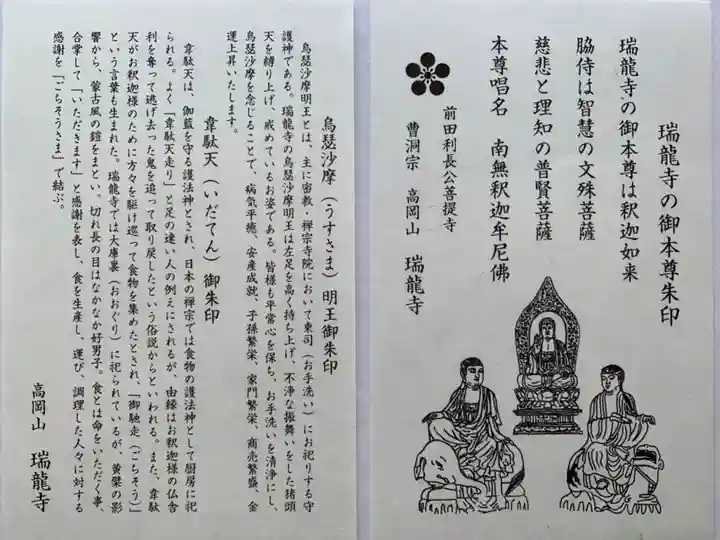 瑞龍寺の御本尊朱印
瑞龍寺の御本尊は釈迦如来
脇侍は智慧の文殊菩薩
慈悲と理知の普賢菩薩
本尊唱名　南無釈迦牟尼佛
前田利長公菩提寺
曹洞宗　高岡山　瑞龍寺
烏瑟沙摩（うすさま）明王御朱印
烏瑟沙摩明王とは、主に密教・禅宗寺院において東司（お手洗い）にお祀りする守
護神である。瑞龍寺の烏瑟沙摩明王は左足を高く持ち上げ、不浄な振舞いをした猪頭
天を縛り上げ、戒めているお姿である。皆様も平常心を保ち、お手洗いを清浄にし、
烏瑟沙摩を念じることで、病気平癒、安産成就、子孫繁栄、家門繁栄、商売繁盛、金
運上昇いたします。
韋駄天（いだてん）御朱印
韋駄天は、伽藍を守る護法神とされ、日本の禅宗では食物の護法神として厨房に祀
られる。よく「韋駄天走り」と足の速い人の例えにされるが、由縁はお釈迦様の仏舎
利を奪って逃げ去った鬼を追って取り戻したという俗説からといわれる。また、韋駄
天がお釈迦様のために方々を駆け巡って食物を集めたとされ、「御馳走（ごちそう）」
という言葉も生まれた。瑞龍寺では大庫裏（おおぐり）に祀られているが、黄檗の影
響から、蒙古風の鎧をまとい。切れ長の目はなかなか好男子。食とは命をいただく事、
合掌して「いただきます」と感謝を表し、食を生産し、運び、調理した人々に対する
感謝を「ごちそうさま」で結ぶ。
高岡山　瑞龍寺